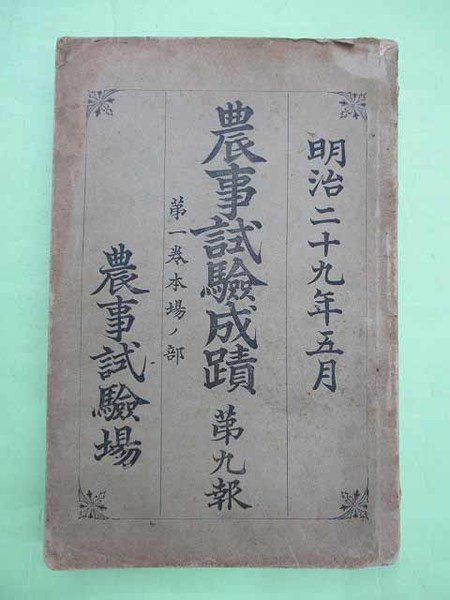 明治二十九年五月
農事試驗成蹟 第九報
第一巻本場ノ部
農事試驗場